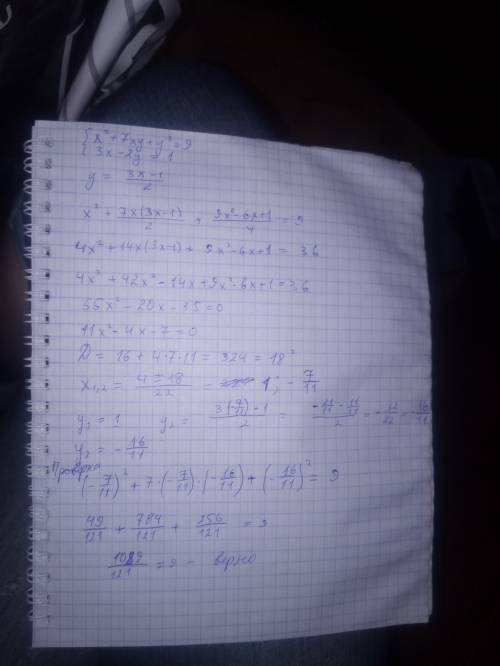 { x² + 7xy + y² = 9
3x - 2y = 1
y = (3x-1)/2
x² + 7x(3x-1)/2 + (9x²-6x+1)/4 = 9
4x² + 14x(3x-1) + 9x² - 6x + 1 = 36
4x² + 42x² - 14x + 9x² - 6x + 1 = 36
55x² - 20x - 35 = 0
11x² - 4x - 7 = 0
D = 16 + 4·7·11 = 324 = 18²
x₁,₂ = (4±18)/22 = 1; -7/11
y₁ = 1 y₂ = (3(-7/11) - 1)/2 = (-21/11 - 11/11)/2 = -32/22 = -16/11
y₂ = -16/11
Проверка
(-7/11)² + 7·(-7/11)·(-16/11) + (-16/11)² = 9
49/121 + 784/121 + 256/121 = 9
1089/121 = 9 - верно